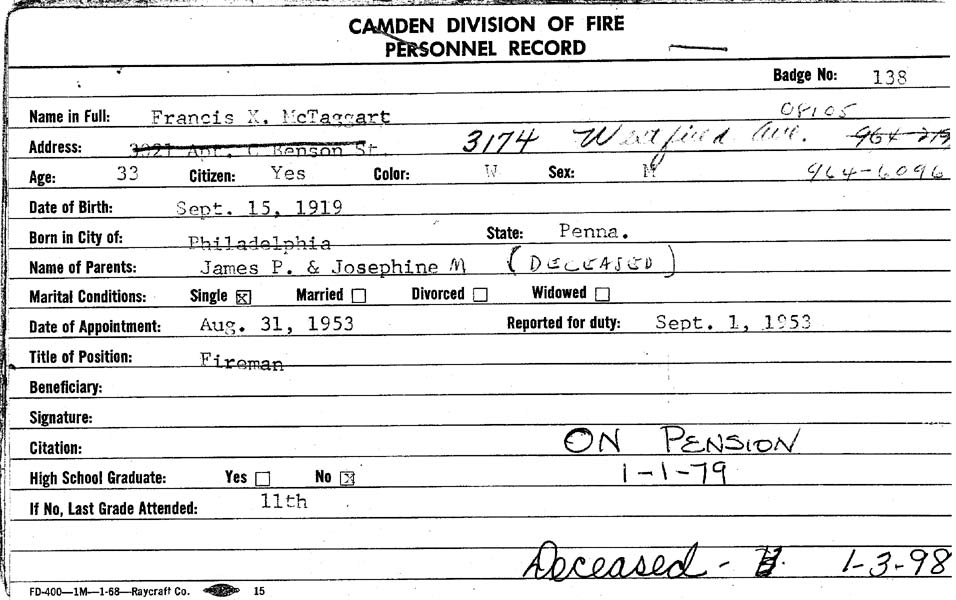 CAMDEN DIVISION OF FIRE
PERSONNEL RECORD
Badge No: 138
08105
Name in Full: Francis X. McTaggart
Address: 3021 Apt. C Benson St. 3174 Westfield Ave. 964-219
Age: 33 Citizen: Yes Color: W Sex: M 964-6096
Date of Birth: Sept. 15, 1919
Born in City of: Philadelphia State: Penna.
Name of Parents: James P. & Josephine M (DECEASED)
Marital Conditions: Single ☒ Married ☐ Divorced ☐ Widowed ☐
Date of Appointment: Aug. 31, 1953 Reported for duty: Sept. 1, 1953
Title of Position: Fireman
Beneficiary:
Signature:
Citation: ON PENSION
High School Graduate: Yes ☐ No ☒ 1-1-79
If No, Last Grade Attended: 11th
Deceased - 1-3-98
FD-400—1M—1-68—Raycraft Co. 15